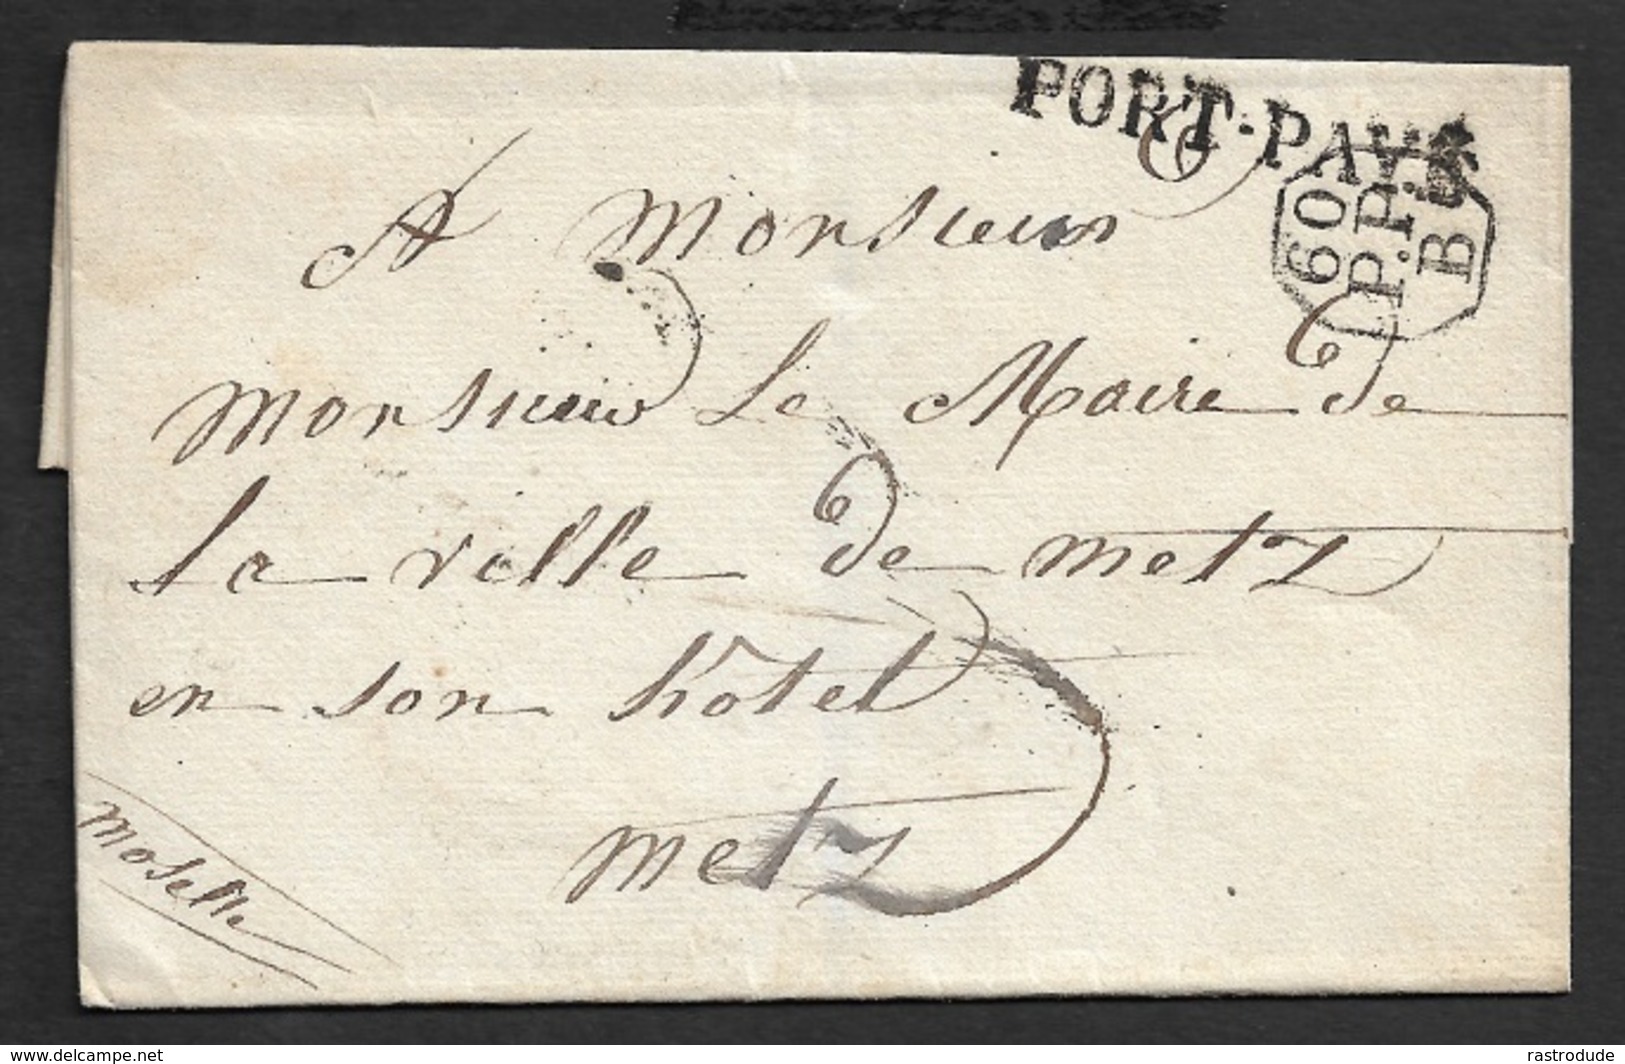 PORT-PAYÉ
60
P.P.P.
B
A Monsieur
Monsieur Le Maire de
la ville de metz
en son hôtel
metz
moselle
www.delcampe.net
rastrodude